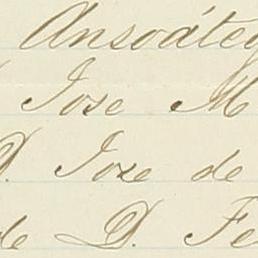 Ansoáteg
Jose M
D. Jose de
de D. Fe